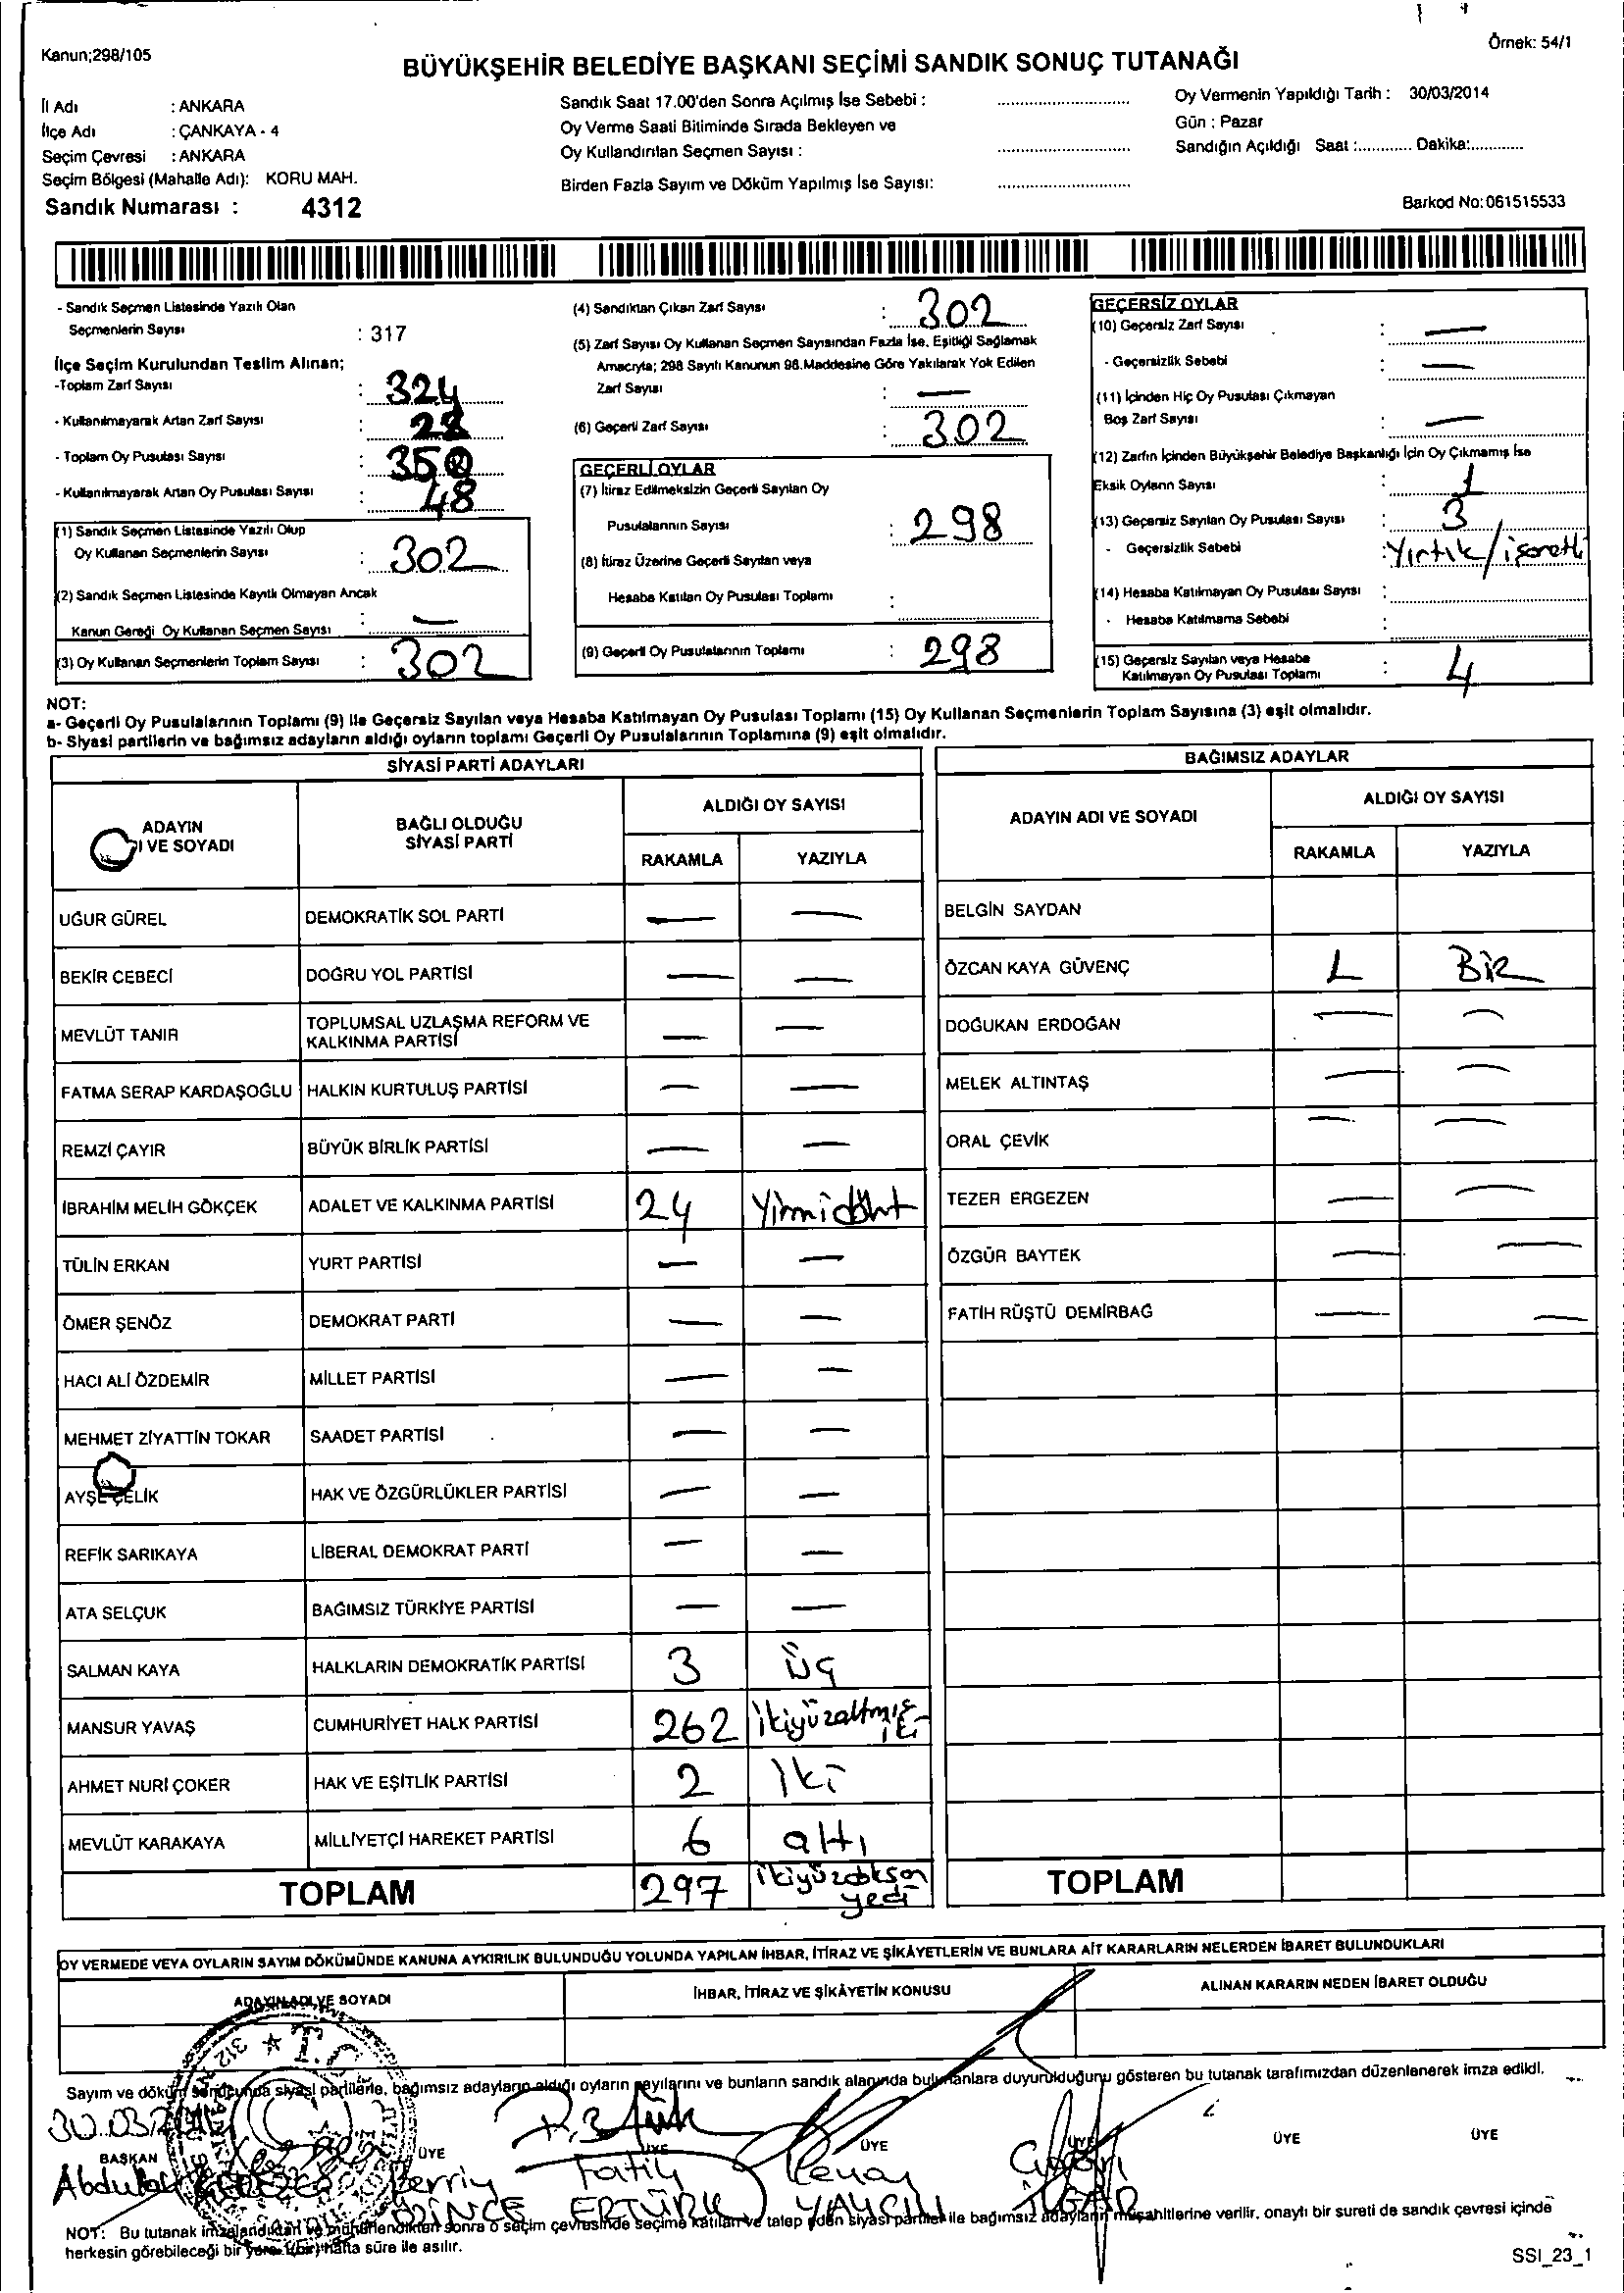 Kanun;298/105
Örnek: 54/1
BÜYÜKŞEHİR BELEDİYE BAŞKANI SEÇİMİ SANDIK SONUÇ TUTANAĞI
İl Adı : ANKARA
İlçe Adı : ÇANKAYA - 4
Seçim Çevresi : ANKARA
Seçim Bölgesi (Mahalle Adı): KORU MAH.
Sandık Numarası : 4312
Sandık Saat 17.00'den Sonra Açılmış İse Sebebi :
Oy Verme Saati Bitiminde Sırada Bekleyen ve
Oy Kullandırılan Seçmen Sayısı :
Birden Fazla Sayım ve Döküm Yapılmış İse Sayısı:
Oy Vermenin Yapıldığı Tarih : 30/03/2014
Gün : Pazar
Sandığın Açıldığı Saat :............ Dakika:............
Barkod No:061515533
- Sandık Seçmen Listesinde Yazılı Olan
Seçmenlerin Sayısı : 317
İlçe Seçim Kurulundan Teslim Alınan;
-Toplam Zarf Sayısı : 324
- Kullanılmayarak Artan Zarf Sayısı : 22
- Toplam Oy Pusulası Sayısı : 350
- Kullanılmayarak Artan Oy Pusulası Sayısı : 48
(1) Sandık Seçmen Listesinde Yazılı Olup
Oy Kullanan Seçmenlerin Sayısı : 302
(2) Sandık Seçmen Listesinde Kayıtlı Olmayan Ancak
Kanun Gereği Oy Kullanan Seçmen Sayısı : —
(3) Oy Kullanan Seçmenlerin Toplam Sayısı : 302
(4) Sandıktan Çıkan Zarf Sayısı : 302
(5) Zarf Sayısı Oy Kullanan Seçmen Sayısından Fazla İse, Eşitliği Sağlamak
Amacıyla; 298 Sayılı Kanunun 98.Maddesine Göre Yakılarak Yok Edilen
Zarf Sayısı : —
(6) Geçerli Zarf Sayısı : 302
GEÇERLİ OYLAR
(7) İtiraz Edilmeksizin Geçerli Sayılan Oy
Pusulalarının Sayısı : 298
(8) İtiraz Üzerine Geçerli Sayılan veya
Hesaba Katılan Oy Pusulası Toplamı :
(9) Geçerli Oy Pusulalarının Toplamı : 298
GEÇERSİZ OYLAR
(10) Geçersiz Zarf Sayısı : —
- Geçersizlik Sebebi : —
(11) İçinden Hiç Oy Pusulası Çıkmayan
Boş Zarf Sayısı : —
(12) Zarfın İçinden Büyükşehir Belediye Başkanlığı İçin Oy Çıkmamış İse
Eksik Oyların Sayısı : 1
(13) Geçersiz Sayılan Oy Pusulası Sayısı : 3
- Geçersizlik Sebebi : Yırtık/işaretli
(14) Hesaba Katılmayan Oy Pusulası Sayısı :
- Hesaba Katılmama Sebebi :
(15) Geçersiz Sayılan veya Hesaba
Katılmayan Oy Pusulası Toplamı : 4
NOT:
a- Geçerli Oy Pusulalarının Toplamı (9) ile Geçersiz Sayılan veya Hesaba Katılmayan Oy Pusulası Toplamı (15) Oy Kullanan Seçmenlerin Toplam Sayısına (3) eşit olmalıdır.
b- Siyasi partilerin ve bağımsız adayların aldığı oyların toplamı Geçerli Oy Pusulalarının Toplamına (9) eşit olmalıdır.
SİYASİ PARTİ ADAYLARI
ADAYIN
I VE SOYADI
BAĞLI OLDUĞU
SİYASİ PARTİ
ALDIĞI OY SAYISI
RAKAMLA YAZIYLA
UĞUR GÜREL DEMOKRATİK SOL PARTİ — —
BEKİR CEBECİ DOĞRU YOL PARTİSİ — —
MEVLÜT TANIR TOPLUMSAL UZLAŞMA REFORM VE
KALKINMA PARTİSİ — —
FATMA SERAP KARDAŞOĞLU HALKIN KURTULUŞ PARTİSİ — —
REMZİ ÇAYIR BÜYÜK BİRLİK PARTİSİ — —
İBRAHİM MELİH GÖKÇEK ADALET VE KALKINMA PARTİSİ 24 Yirmidört
TÜLİN ERKAN YURT PARTİSİ — —
ÖMER ŞENÖZ DEMOKRAT PARTİ — —
HACI ALİ ÖZDEMİR MİLLET PARTİSİ — —
MEHMET ZİYATTİN TOKAR SAADET PARTİSİ — —
AYŞE ÇELİK HAK VE ÖZGÜRLÜKLER PARTİSİ — —
REFİK SARIKAYA LİBERAL DEMOKRAT PARTİ — —
ATA SELÇUK BAĞIMSIZ TÜRKİYE PARTİSİ — —
SALMAN KAYA HALKLARIN DEMOKRATİK PARTİSİ 3 Üç
MANSUR YAVAŞ CUMHURİYET HALK PARTİSİ 262 ikiyüzaltmış
iki
AHMET NURİ ÇOKER HAK VE EŞİTLİK PARTİSİ 2 İki
MEVLÜT KARAKAYA MİLLİYETÇİ HAREKET PARTİSİ 6 altı
TOPLAM 297 ikiyüzdoksan
yedi
BAĞIMSIZ ADAYLAR
ADAYIN ADI VE SOYADI
ALDIĞI OY SAYISI
RAKAMLA YAZIYLA
BELGİN SAYDAN
ÖZCAN KAYA GÜVENÇ 1 BİR
DOĞUKAN ERDOĞAN — —
MELEK ALTINTAŞ — —
ORAL ÇEVİK — —
TEZER ERGEZEN — —
ÖZGÜR BAYTEK — —
FATİH RÜŞTÜ DEMİRBAĞ — —
TOPLAM
OY VERMEDE VEYA OYLARIN SAYIM DÖKÜMÜNDE KANUNA AYKIRILIK BULUNDUĞU YOLUNDA YAPILAN İHBAR, İTİRAZ VE ŞİKÂYETLERİN VE BUNLARA AİT KARARLARIN NELERDEN İBARET BULUNDUKLARI
ADAYIN ADI VE SOYADI
İHBAR, İTİRAZ VE ŞİKÂYETİN KONUSU
ALINAN KARARIN NEDEN İBARET OLDUĞU
Sayım ve döküm sonucunda siyasi partilerle, bağımsız adayların aldığı oyların sayılarını ve bunların sandık alanında bulunanlara duyurulduğunu gösteren bu tutanak tarafımızdan düzenlenerek imza edildi.
BAŞKAN ÜYE ÜYE ÜYE ÜYE ÜYE ÜYE
Abdullah
Fatih
ERTÜRK
YALÇIN
NOT: Bu tutanak imzalandıktan ve mühürlendikten sonra o seçim çevresinde seçime katılan ve talep eden siyasi partiler ile bağımsız adayların müşahitlerine verilir, onaylı bir sureti de sandık çevresi içinde
herkesin görebileceği bir yere 1(bir) hafta süre ile asılır.
SSI_23_1